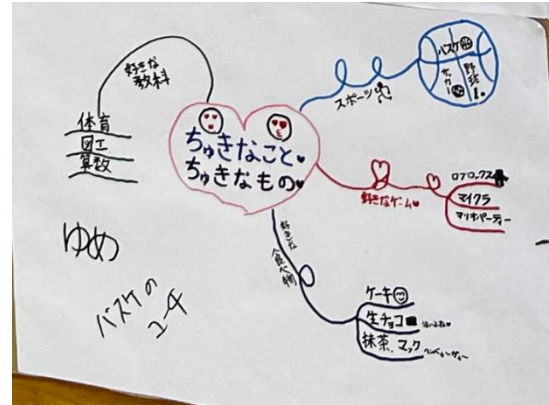 好きな
教科
体育
図工
算数
ちゅきなこと
ちゅきなもの
スポーツ
バスケ
サッカー
野球
好きなゲーム
ロブロックス
マイクラ
マリオパーティー
好きな
食べ物
ケーキ
生チョコ
抹茶、マック
ゆめ
バスケの
コーチ